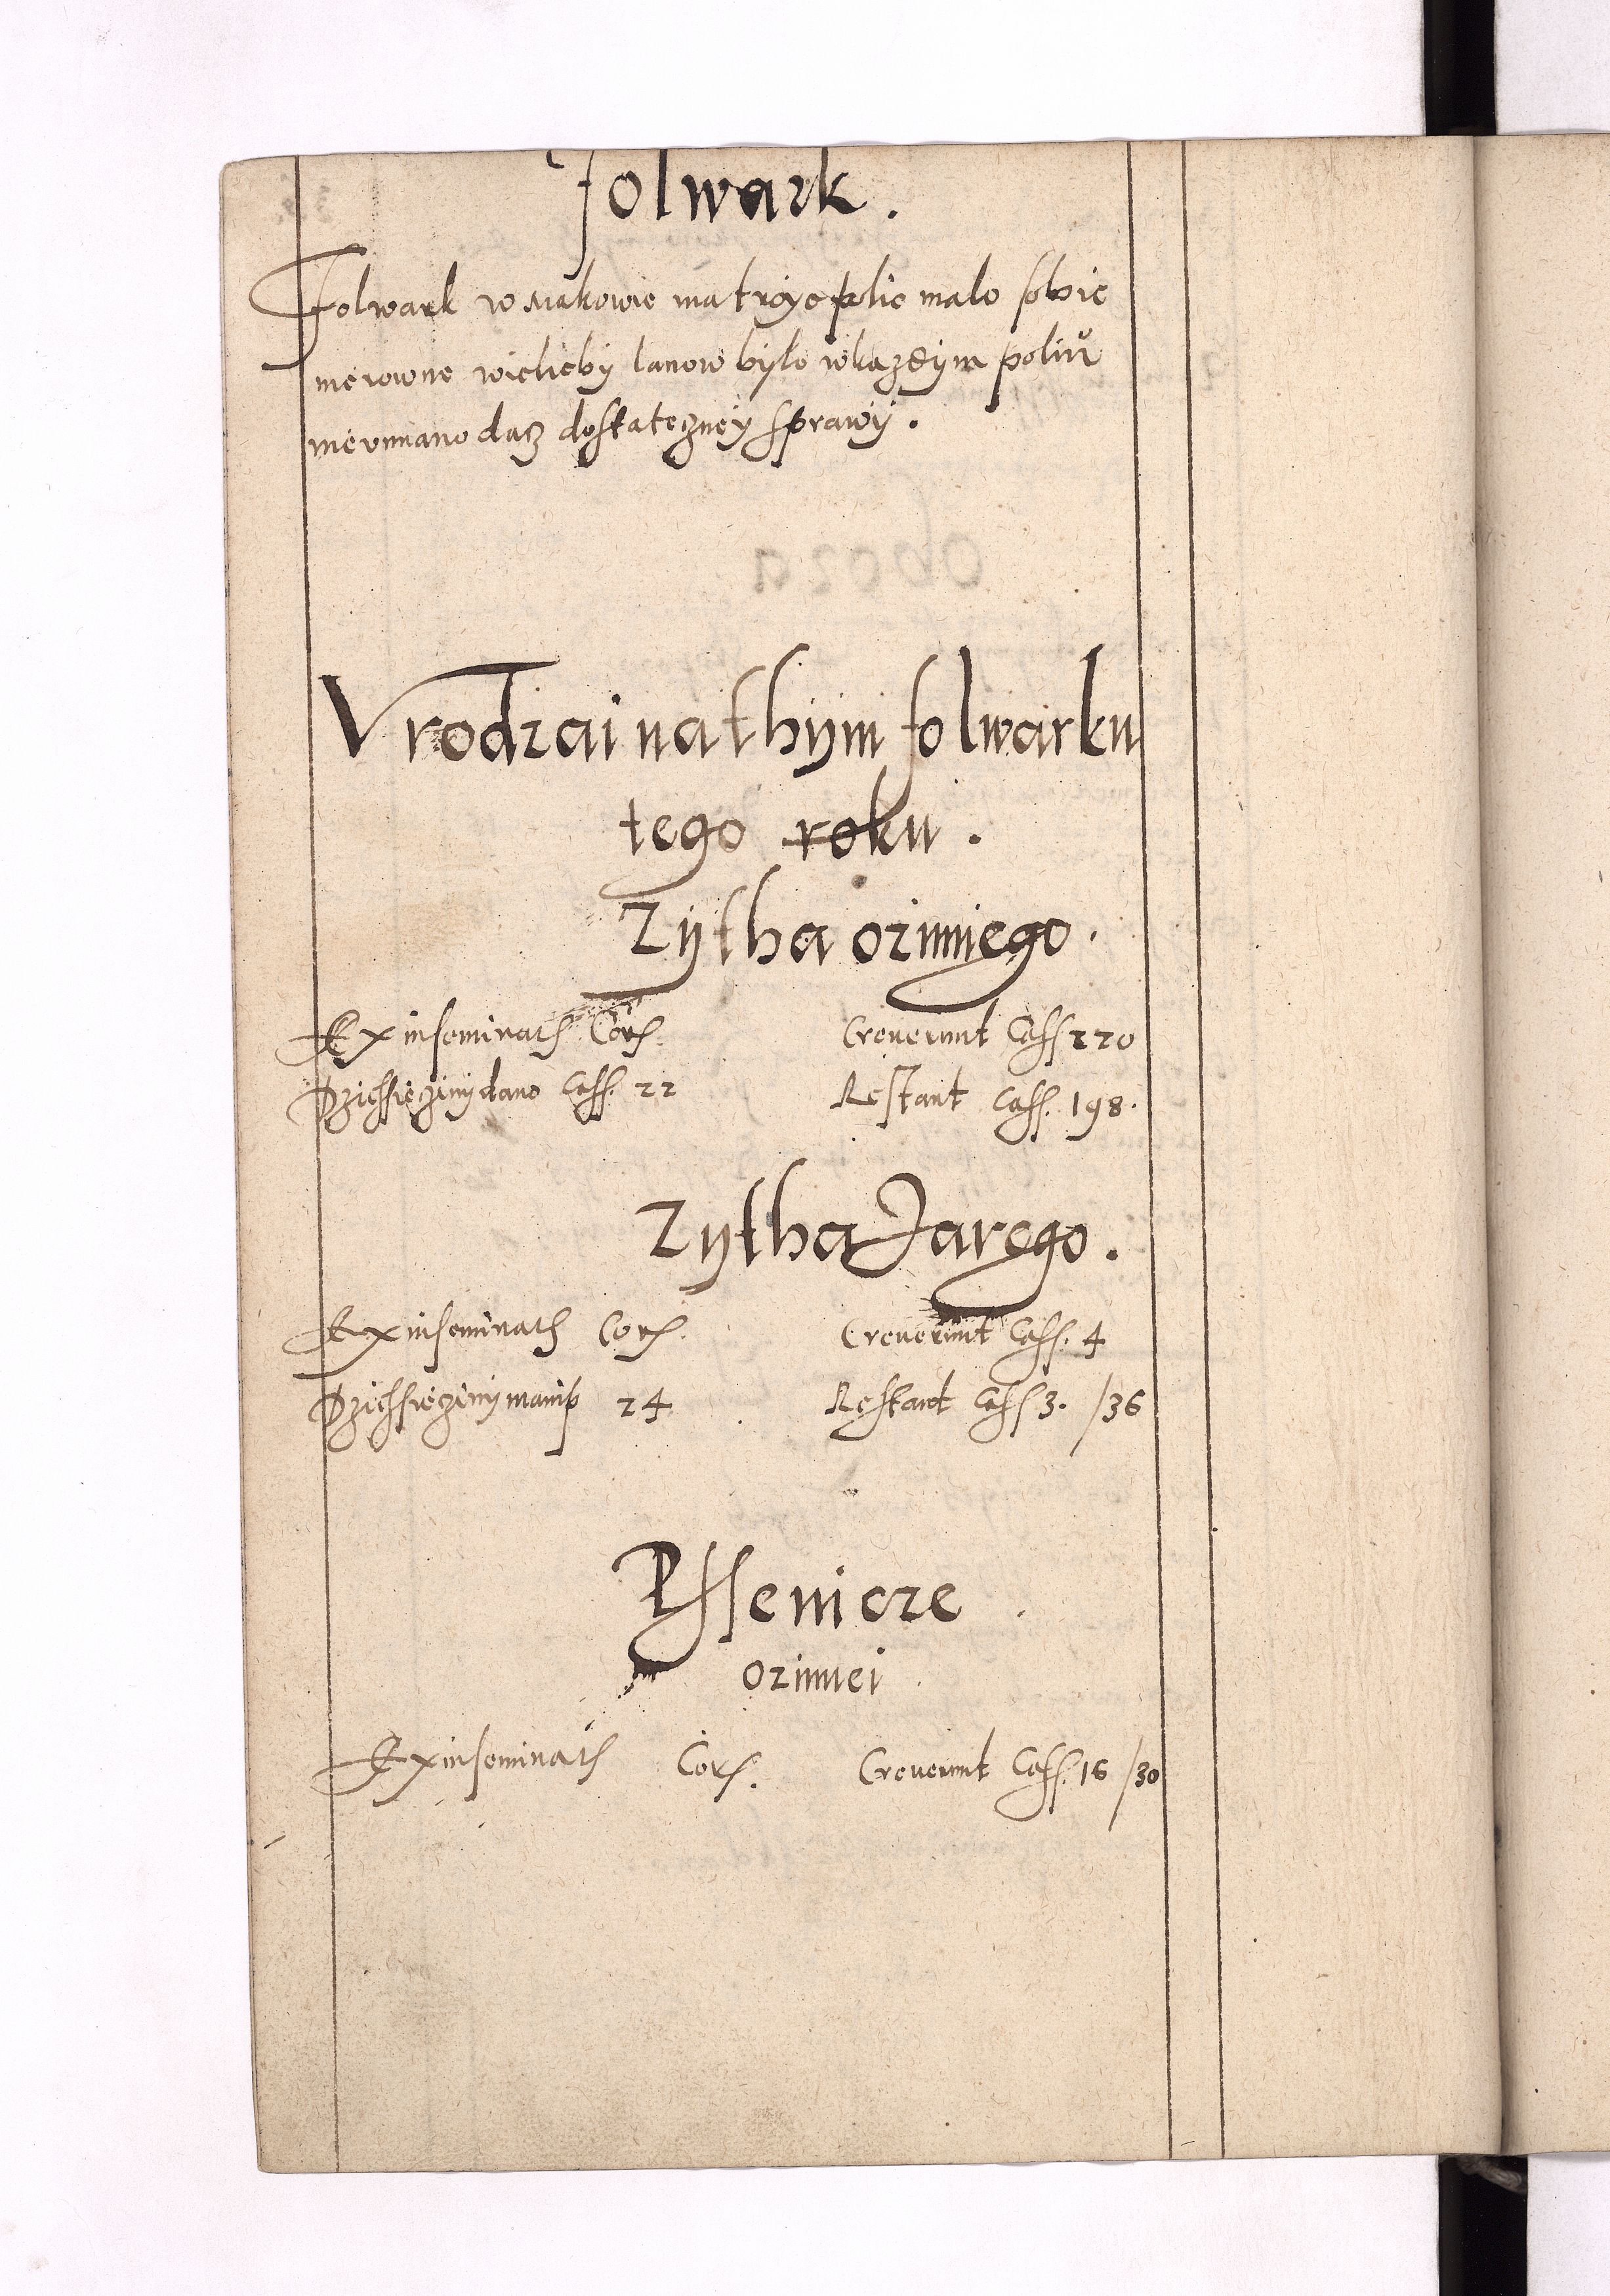 folwark.
Folwark w Makowie ma troye polie malo sobie
nierowne wielieby lanow bylo wkazdym poliu
nievmiano dacz dostateczney sprawy.
Vrodzai na thym folwarku
tego roku.
Zytha ozimiego.
Ex inseminatis Cor. Creuerunt Cass 220
Dziessięcziny dano Cass. 22 Restant Cass. 198.
Zytha Jarego.
Ex inseminatis Cor. Creuerunt Cass. 4
Dziessięcziny manip 24 Restant Cass 3. /36
Pssenicze
ozimiei
Ex inseminatis Cor. Creuerunt Cass. 16 /30